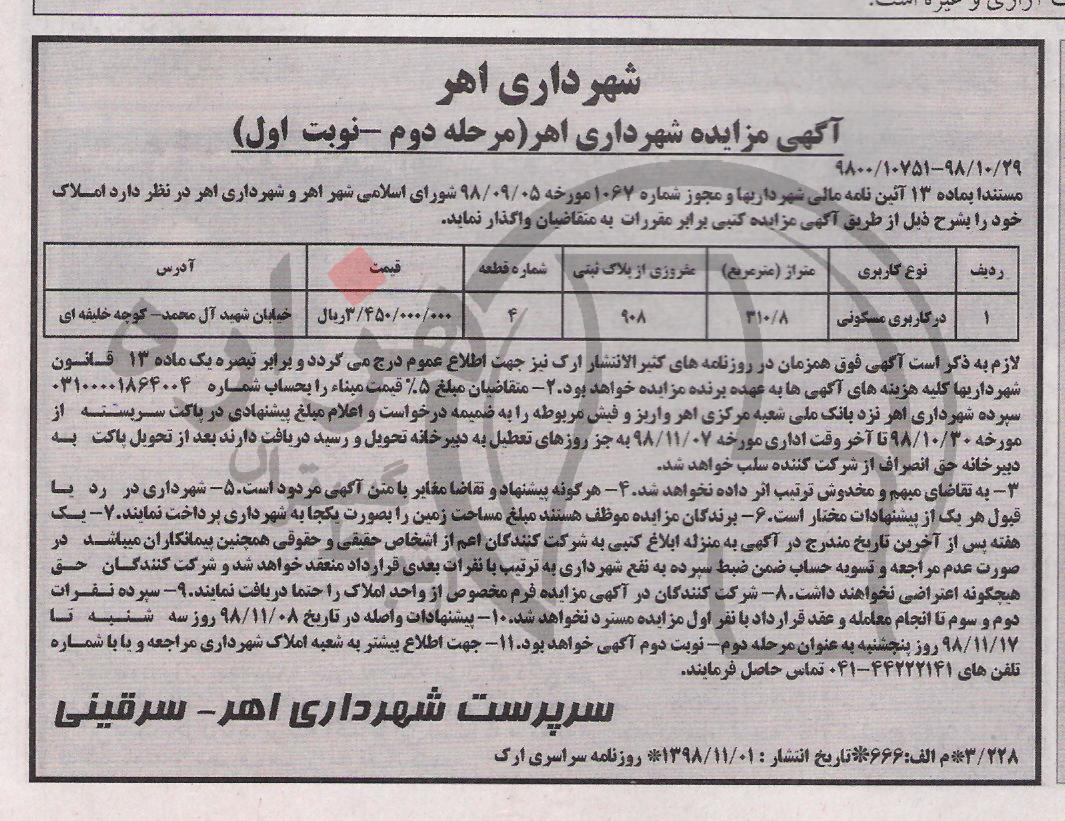 شهرداری اهر
آگهی مزایده شهرداری اهر(مرحله دوم –نوبت اول)
۹۸۰۰/۱۰۷۵۱–۹۸/۱۰/۲۹
مستندا بماده ۱۳ آئین نامه مالی شهرداریها و مجوز شماره ۱۰۶۷ مورخه ۹۸/۰۹/۰۵ شورای اسلامی شهر اهر و شهرداری اهر در نظر دارد املاک
خود را بشرح ذیل از طریق آگهی مزایده کتبی برابر مقررات به متقاضیان واگذار نماید.
ردیف نوع کاربری متراژ (مترمربع) مفروزی از پلاک ثبتی شماره قطعه قیمت آدرس
۱ درکاربری مسکونی ۳۱۰/۸ ۹۰۸ ۴ ۳/۴۵۰/۰۰۰/۰۰۰ریال خیابان شهید آل محمد– کوچه خلیفه ای
لازم به ذکر است آگهی فوق همزمان در روزنامه های کثیرالانتشار ارک نیز جهت اطلاع عموم درج می گردد و برابر تبصره یک ماده ۱۳ قانون
شهرداریها کلیه هزینه های آگهی ها به عهده برنده مزایده خواهد بود.۲– متقاضیان مبلغ ۵% قیمت مبناء را بحساب شماره ۰۳۱۰۰۰۰۱۸۶۴۰۰۴
سپرده شهرداری اهر نزد بانک ملی شعبه مرکزی اهر واریز و فیش مربوطه را به ضمیمه درخواست و اعلام مبلغ پیشنهادی در پاکت سربسته از
مورخه ۹۸/۱۰/۳۰ تا آخر وقت اداری مورخه ۹۸/۱۱/۰۷ به جز روزهای تعطیل به دبیرخانه تحویل و رسید دریافت دارند بعد از تحویل پاکت به
دبیرخانه حق انصراف از شرکت کننده سلب خواهد شد.
۳– به تقاضای مبهم و مخدوش ترتیب اثر داده نخواهد شد.۴– هرگونه پیشنهاد و تقاضا مغایر با متن آگهی مردود است.۵– شهرداری در رد یا
قبول هر یک از پیشنهادات مختار است.۶– برندگان مزایده موظف هستند مبلغ مساحت زمین را بصورت یکجا به شهرداری پرداخت نمایند.۷– یک
هفته پس از آخرین تاریخ مندرج در آگهی به منزله ابلاغ کتبی به شرکت کنندگان اعم از اشخاص حقیقی و حقوقی همچنین پیمانکاران میباشد در
صورت عدم مراجعه و تسویه حساب ضمن ضبط سپرده به نفع شهرداری به ترتیب با نفرات بعدی قرارداد منعقد خواهد شد و شرکت کنندگان حق
هیچگونه اعتراضی نخواهند داشت.۸– شرکت کنندگان در آگهی مزایده فرم مخصوص از واحد املاک را حتما دریافت نمایند.۹– سپرده نفرات
دوم و سوم تا انجام معامله و عقد قرارداد با نفر اول مزایده مسترد نخواهد شد.۱۰– پیشنهادات واصله در تاریخ ۹۸/۱۱/۰۸ روز سه شنبه تا
۹۸/۱۱/۱۷ روز پنجشنبه به عنوان مرحله دوم– نوبت دوم آگهی خواهد بود.۱۱– جهت اطلاع بیشتر به شعبه املاک شهرداری مراجعه و یا با شماره
تلفن های ۴۴۲۲۲۱۴۱–۰۴۱ تماس حاصل فرمایند.
سرپرست شهرداری اهر– سرقینی
۳/۲۲۸*م الف:۶۶۶*تاریخ انتشار : ۱۳۹۸/۱۱/۰۱* روزنامه سراسری ارک